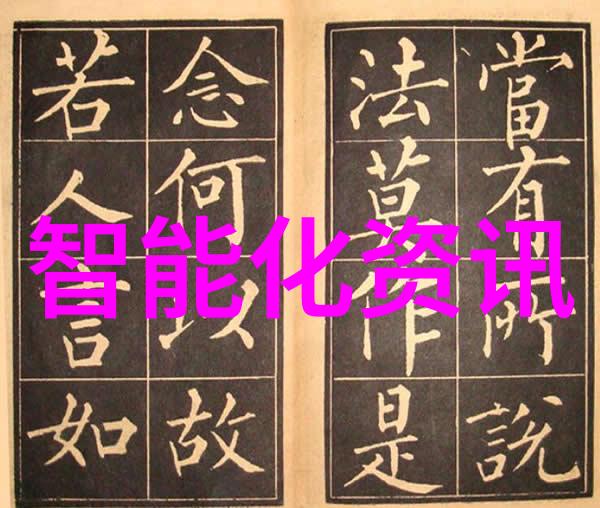 當有所說
法莫作是
念何以故
若人言如
智能化资讯